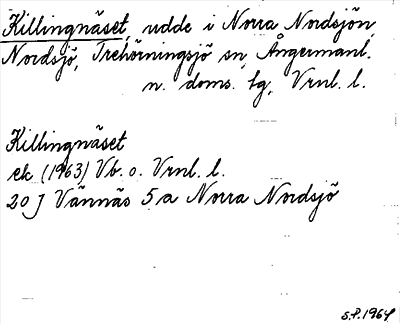 Killingnäset, udde i Norra Nordsjön,
Nordsjö, Trehörningsjö sn, Ångermanl.
n. doms. tg, Vrnl. l.
Killingnäset
ek (1963) Vb. o. Vrnl. l.
20 J Vännäs 5 a Norra Nordsjö
S.P. 1964